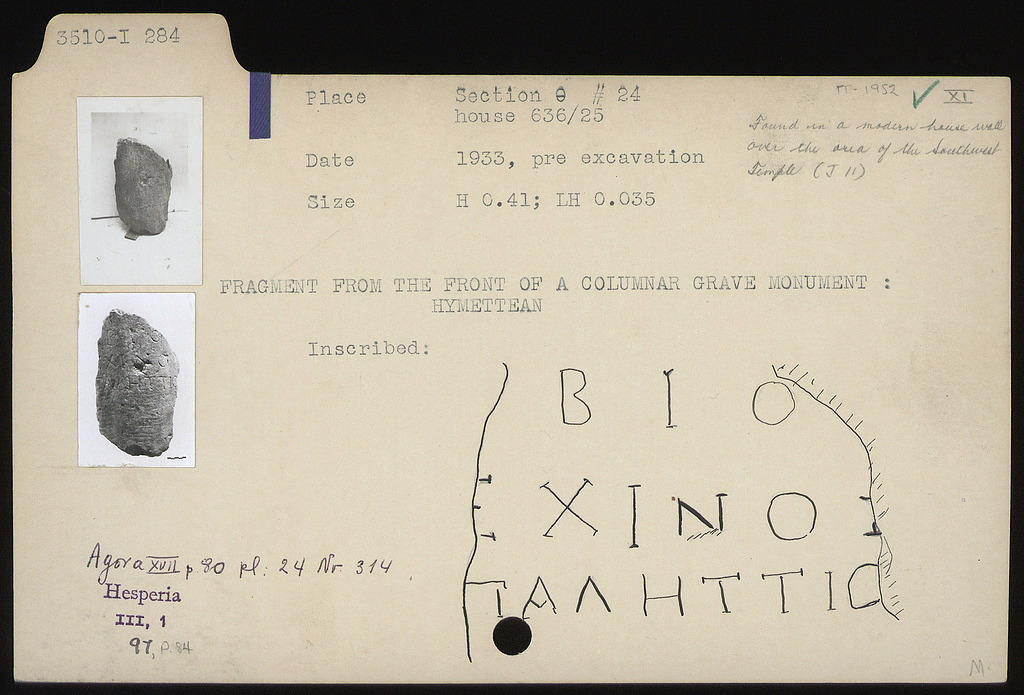 3510-I 284
Place Section Θ # 24
house 636/25
Date 1933, pre excavation
Size H 0.41; LH 0.035
PP-1952 ✓ XI
Found in a modern house wall
over the area of the Southwest
Temple (J 11)
FRAGMENT FROM THE FRONT OF A COLUMNAR GRAVE MONUMENT :
HYMETTEAN
Inscribed:
Β Ι Ο
Ε Χ Ι Ν Ο
Π Α Λ Η Τ Τ Ι Ο
Agora XVII p 80 pl. 24 Nr 314
Hesperia
III, 1
97, P. 84
M.